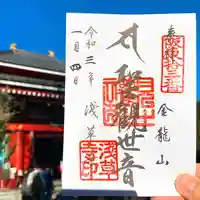 奉
坂東十三番
金龍山
聖観世音
浅草寺印
令和三年 浅草
一月四日